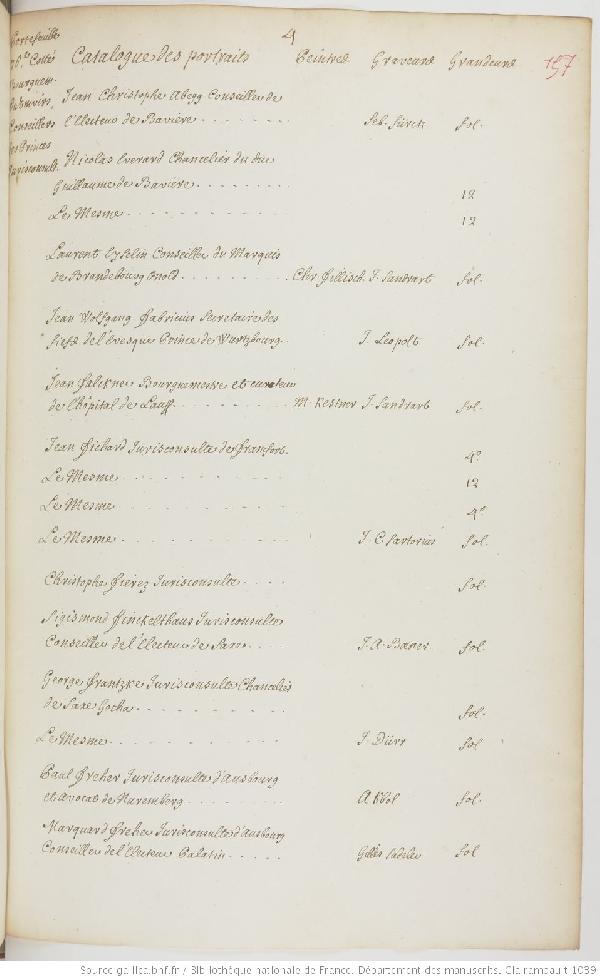 4
Portefeuille
Cotté
Bourguem.
Conseillers
des Princes
Jurisconsult.
Catalogue des portraits Peintres Graveurs Grandeurs 197
Jean Christophe Abegg Conseiller de
l'Electeur de Baviere Seb. fürck fol.
Nicolas Everard Chancelier du duc
Guillaume de Baviere 12
Le Mesme 12
Laurent Eyselin Conseiller du Marquis
de Brandebourg Onold Chr. fillisch. J. Sandrart fol.
Jean Wolfgang fabricius Secretaire des
fiefs de l'évesque Prince de Wurtzbourg J. Leopolt fol.
Jean falckner Bourguemestre et curateur
de l'hôpital de Lauff M. Kestner J. Sandrart fol.
Jean fichard Jurisconsulte de francfort 4º
Le Mesme 12
Le Mesme 4º
Le Mesme J. C. Sartorius fol.
Christophe fierez Jurisconsulte fol.
Sigismond finckelthaus Jurisconsulte
Conseiller de l'Electeur de Saxe J. A. Baner fol.
George frantzke Jurisconsulte Chancelier
de Saxe Gotha fol.
Le Mesme J. Dürr fol
Paul freher Jurisconsulte d'Ausbourg
et Avocat de Nuremberg A Khol fol.
Marquard freher Jurisconsulte d'Ausbourg
Conseiller de l'Electeur Palatin Gilles Sadeler fol
Source gallica.bnf.fr / Bibliothèque nationale de France. Département des manuscrits. Clairambault 1039